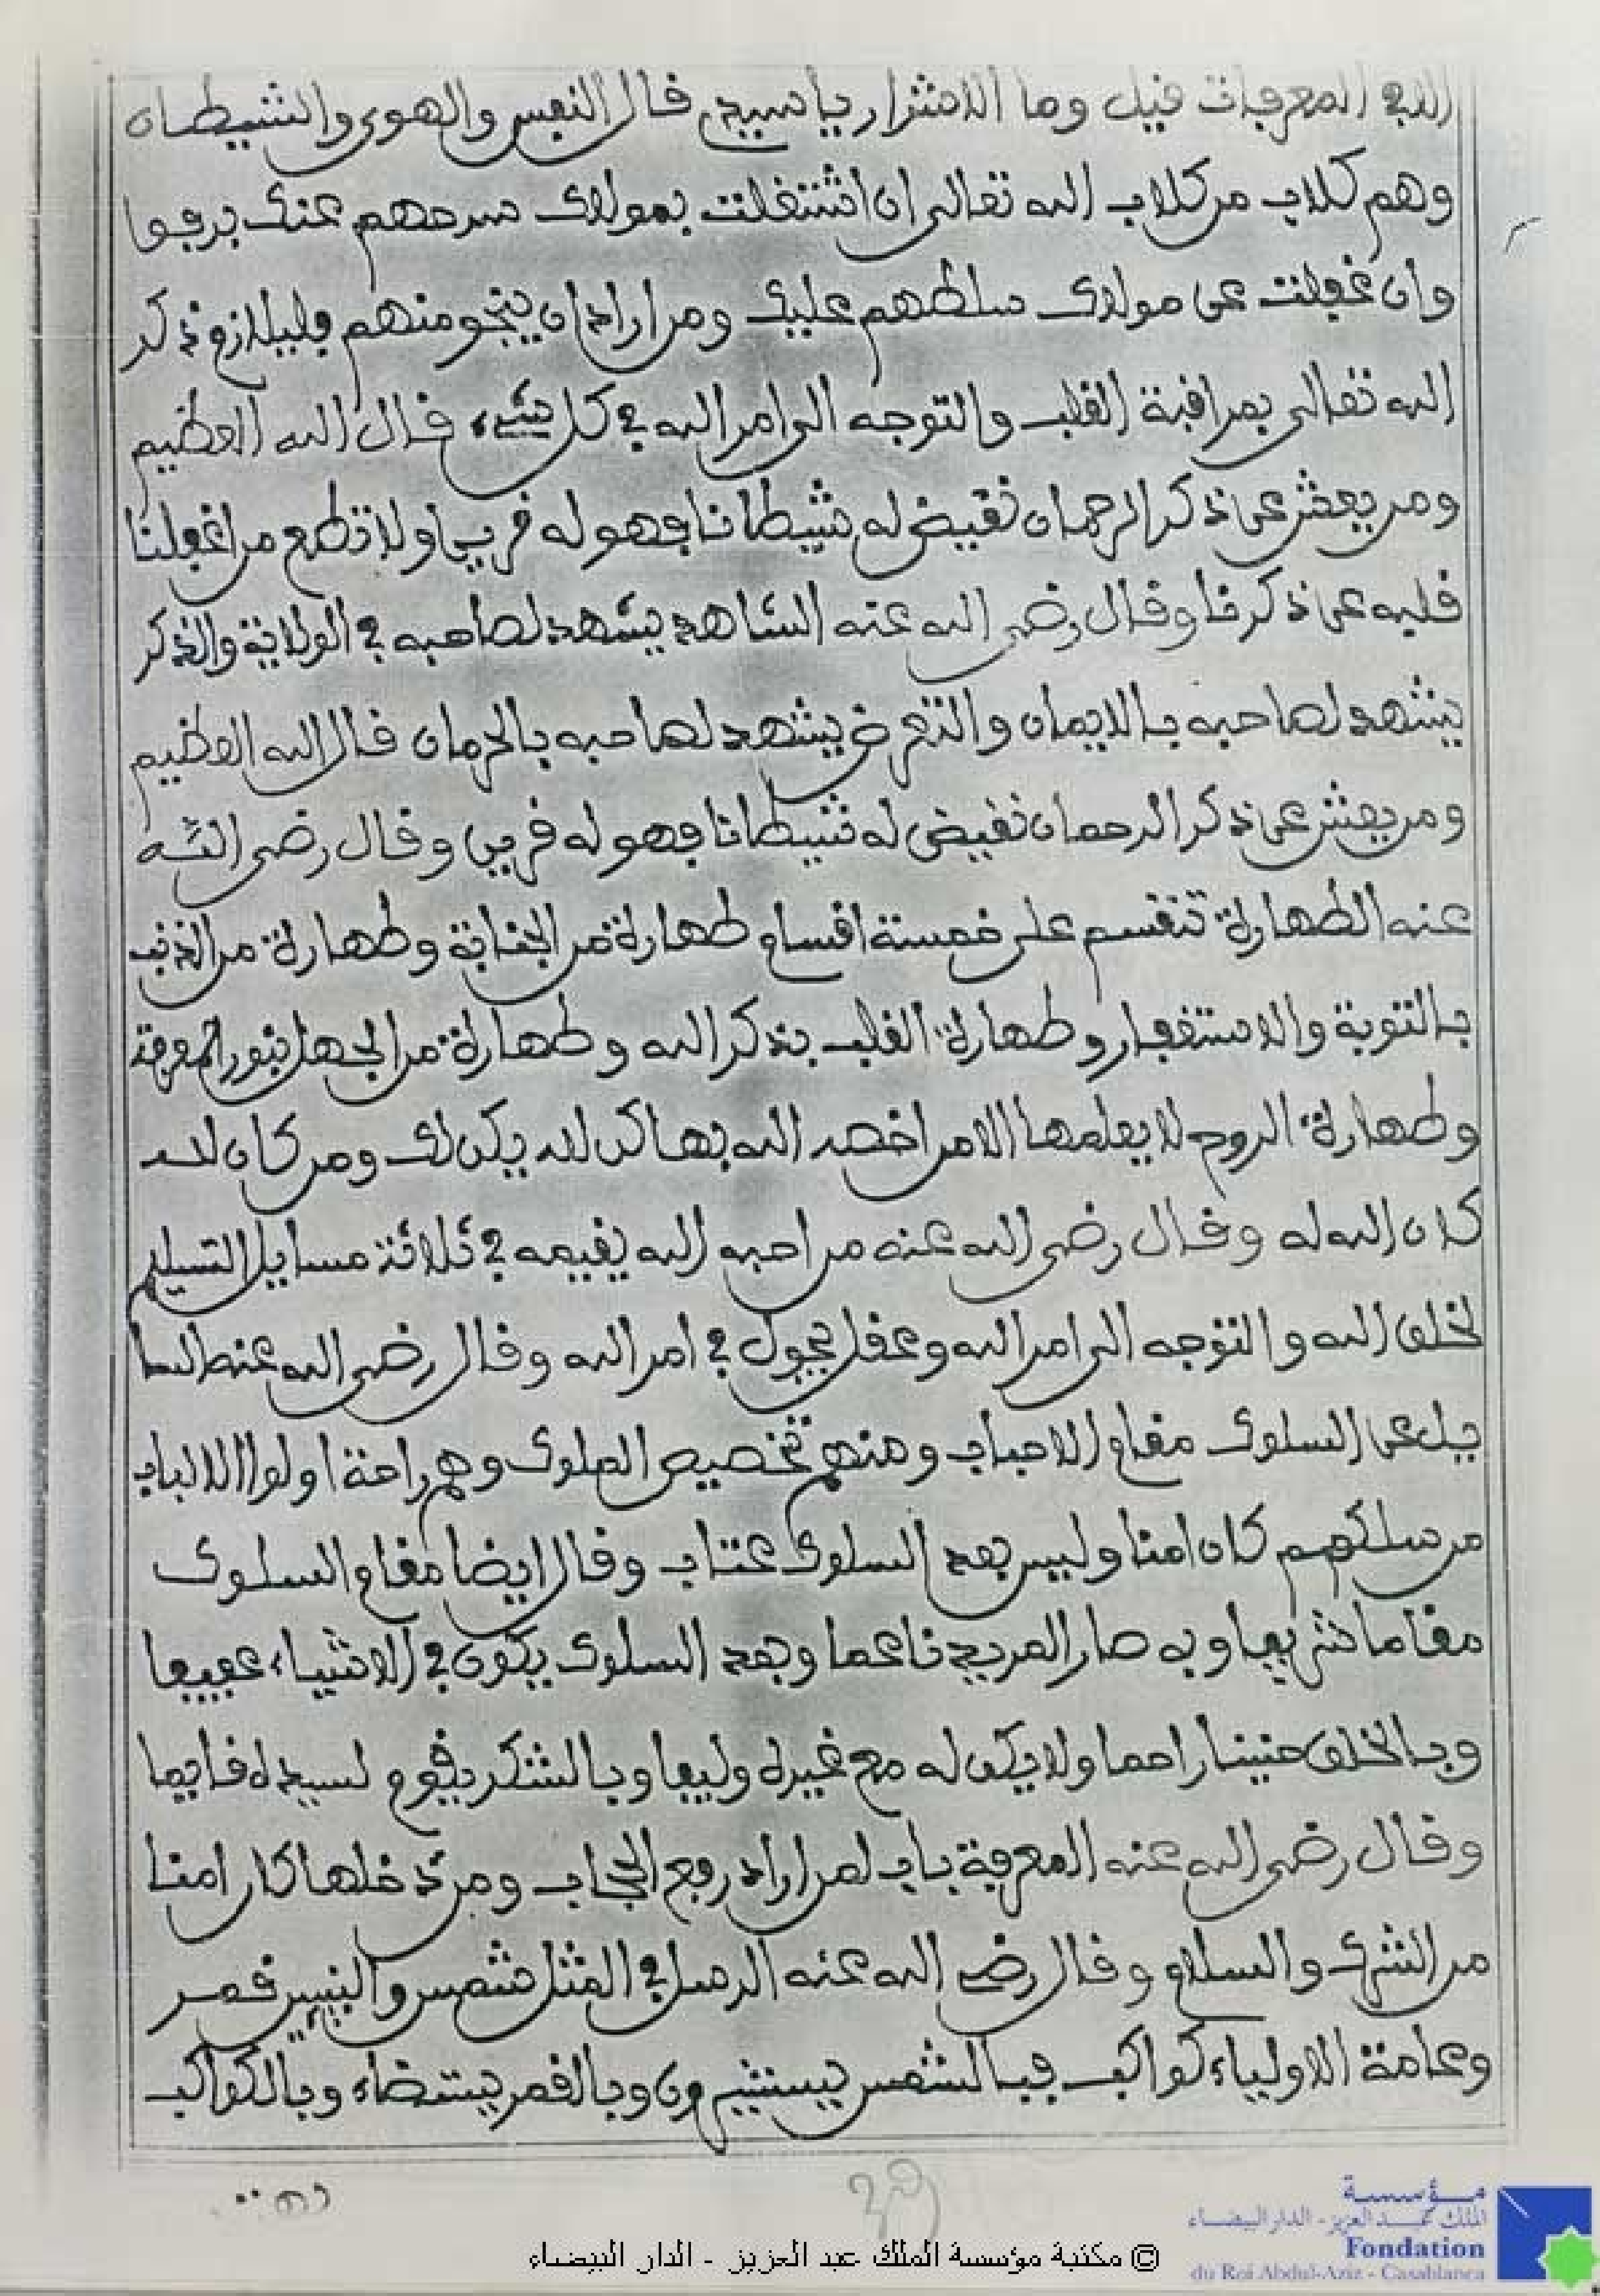 الى المعرفات فيل وما الاشرار يا سيدي فال النفس والهوى والشيطان
وهم كلاب من كلاب الله تعالى ان اشتغلت بمولاك سرحهم عنك برفوا
وان غفلت عن مولاك سلطهم عليك ومن اراد ان ينجو منهم فليلازم ذكر
الله تعالى بمرافبة الفلب والتوجه الى امر الله في كل شيء فال الله العظيم
ومن يعش عن ذكر الرحمان نفيض له شيطانا فهو له فرين ولا تطع من اغفلنا
فلبه عن ذكرنا وفال رضي الله عنه الشاهد يشهد لصاحبه في الولاية والذكر
يشهد لصاحبه بالايمان والتعرض يشهد لصاحبه بالحرمان فال الله العظيم
ومن يعش عن ذكر الرحمان نفيض له شيطانا فهو له فرين وفال رضي الله
عنه الطهارة تنفسم على خمسة افسام طهارة من الجنابة وطهارة من الذنب
بالتوبة والاستغفار وطهارة الفلب بذكر الله وطهارة من الجهل بنور المعرفة
وطهارة الروح لا يعلمها الا من اخصه الله بها كن لله يكن لك ومن كان لله
كان الله له وفال رضي الله عنه من احبه الله يفيمه في ثلاثة مسايل التسليم
لخلق الله والتوجه الى امر الله وعفل يجول في امر الله وفال رضي الله عنه لما
سيل عن السلوك مفام الاحباب ومنهم تخصيص الملوك وهم راحة اولوا الالباب
من سلكهم كان امنا وليس بعد السلوك عتاب وفال ايضا مفام السلوك
مفاما شريعا وبه صار المريد ناعما وبعد السلوك يكون في الاشياء عفيفا
وبالخلق حنينا راحما ولا يكن له مع غيره وليعا وبالشكر يفوم لسيده فايما
وفال رضي الله عنه المعرفة باب لمن اراد رفع الحجاب ومن دخلها كان امنا
من الشرك والسلام وفال رضي الله عنه الرسل في المثل شمس والنبيين فمر
وعامة الاولياء كواكب فبالشمس يستنيرون وبالفمر يستضاء وبالكواكب
© مكتبة مؤسسة الملك عبد العزيز - الدار البيضاء
مؤسسة
الملك عبد العزيز - الدار البيضاء
Fondation
du Roi Abdul-Aziz - Casablanca